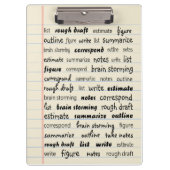 list rough draft estimate figure
outline figure write list summarize
brain storming correspond outline notes
estimate summarize notes list
figure list brain storming
correspond summarize notes estimate
rough draft list estimate outline
brain storming notes correspond
list brain storming rough draft
estimate summarize figure write
outline correspond brain storming
summarize outline take notes
rough draft list write estimate
write figure notes rough draft